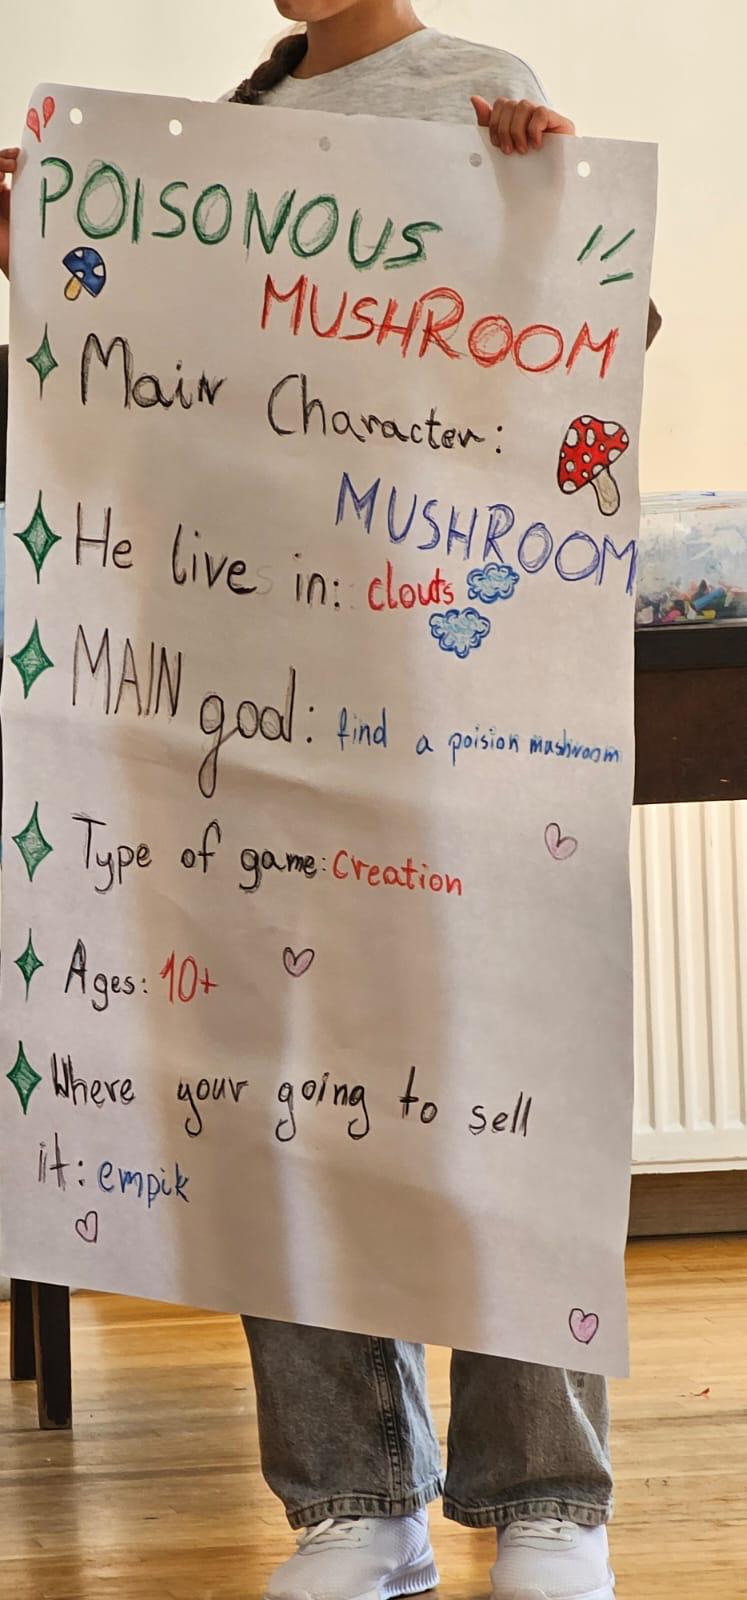 POISONOUS
MUSHROOM
Main Character:
MUSHROOM
He lives in: clouts
MAIN goal: find a poision mushroom
Type of game: Creation
Ages: 10+
Where your going to sell
it: empik